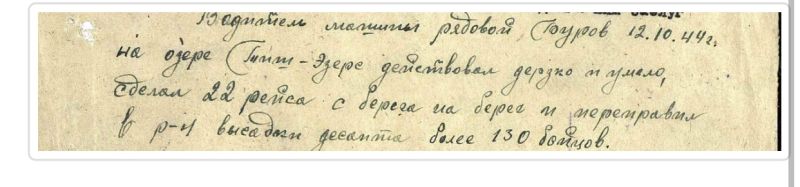 Водитель машины рядовой Буров 12.10.44г.
на озере Киш-Эзерс действовал дерзко и умело,
сделал 22 рейса с берега на берег и переправил
в р-н высадки десанта более 130 бойцов.